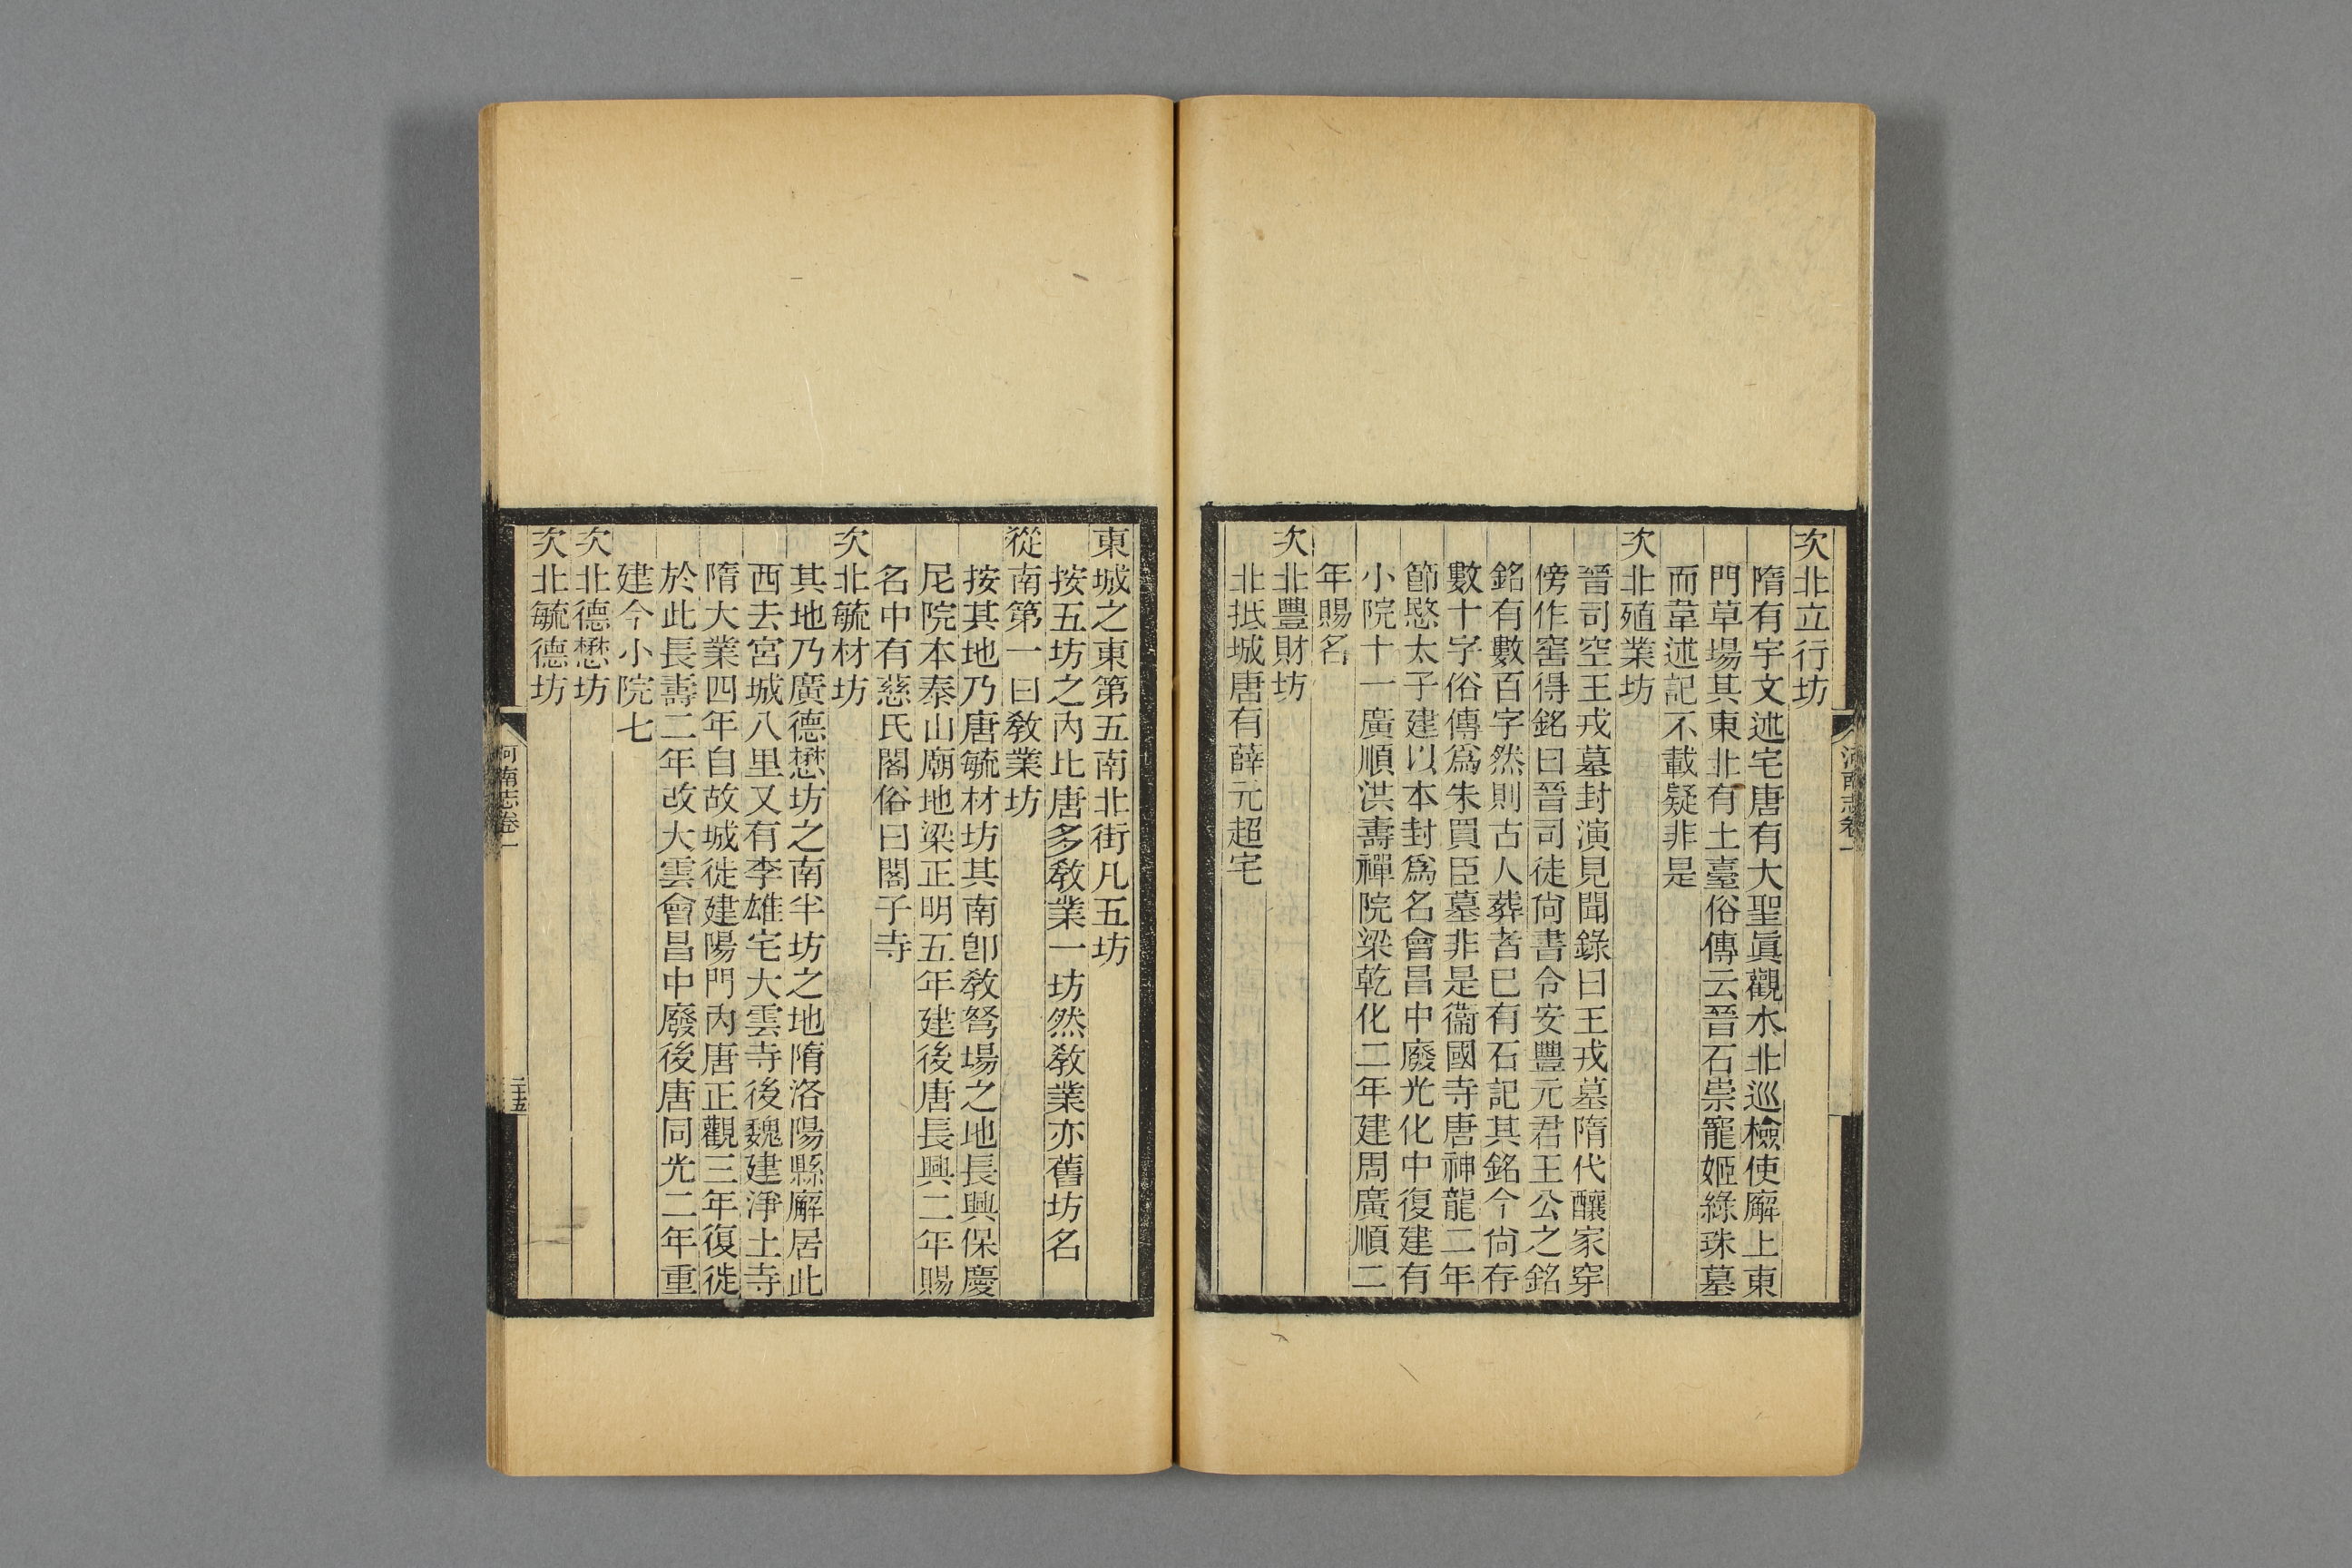 次北立行坊
隋有宇文述宅唐有大聖眞觀水北巡檢使廨上東
門草場其東北有土臺俗傳云晉石崇寵姬綠珠墓
而韋述記不載疑非是
次北殖業坊
晉司空王戎墓封演見聞錄曰王戎墓隋代釀家穿
傍作窖得銘曰晉司徒尙書令安豐元君王公之銘
銘有數百字然則古人葬者已有石記其銘今尙存
數十字俗傳爲朱買臣墓非是衞國寺唐神龍二年
節愍太子建以本封爲名會昌中廢光化中復建有
小院十一廣順洪壽禪院梁乾化二年建周廣順二
年賜名
次北豐財坊
北抵城唐有薛元超宅
河南志卷一
東城之東第五南北街凡五坊
按五坊之內比唐多敎業一坊然敎業亦舊坊名
從南第一曰敎業坊
按其地乃唐毓材坊其南卽敎弩場之地長興保慶
尼院本泰山廟地梁正明五年建後唐長興二年賜
名中有慈氏閣俗曰閣子寺
次北毓材坊
其地乃廣德懋坊之南半坊之地隋洛陽縣廨居此
西去宮城八里又有李雄宅大雲寺後魏建淨土寺
隋大業四年自故城徙建陽門內唐正觀三年復徙
於此長壽二年改大雲會昌中廢後唐同光二年重
建今小院七
次北德懋坊
次北毓德坊
河南志卷一
二十五